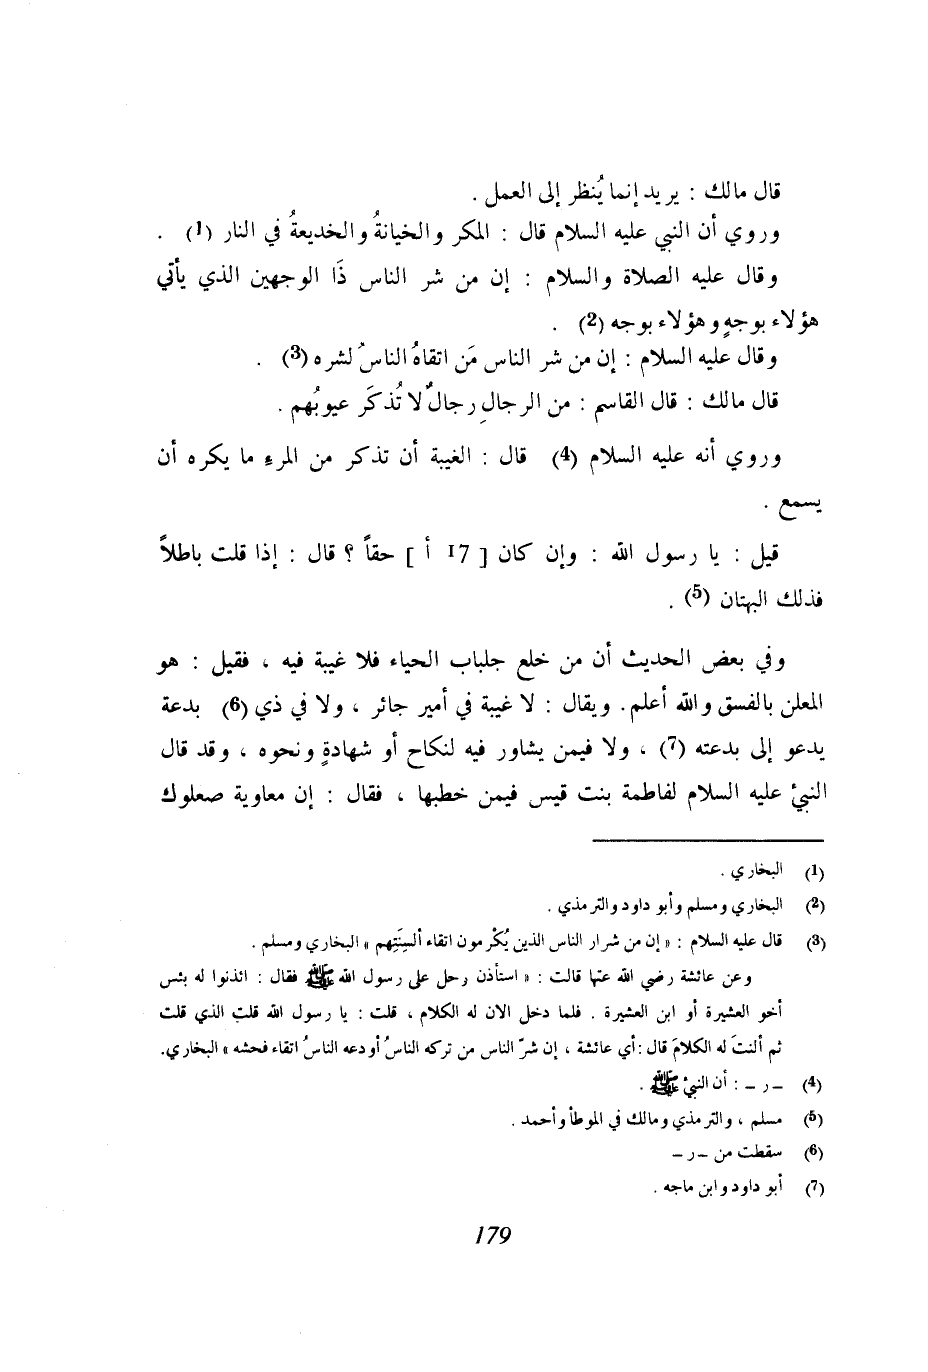 قال مالك : يريد إنما يُنظر إلى العمل .
وروي أن النبي عليه السلام قال : المكر والخيانةُ والخديعةُ في النار (1) .
وقال عليه الصلاة والسلام : إن من شر الناس ذَا الوجهين الذي يأتي
هؤلاء بوجهٍ وهؤلاء بوجه (2) .
وقال عليه السلام : إن من شر الناس مَن اتقاهُ الناسُ لشره (3) .
قال مالك : قال القاسم : من الرجالِ رجالٌ لا تُذكَر عيوبُهم .
وروي أنه عليه السلام (4) قال : الغيبة أن تذكر من المرءِ ما يكره أن
يسمع .
قيل : يا رسول الله : وإن كان [ 17 أ ] حقاً ؟ قال : إذا قلت باطلاً
فذلك البهتان (5) .
وفي بعض الحديث أن من خلع جلباب الحياء فلا غيبة فيه ، فقيل : هو
المعلن بالفسق والله أعلم. ويقال : لا غيبة في أمير جائر ، ولا في ذي (6) بدعة
يدعو إلى بدعته (7) ، ولا فيمن يشاور فيه لنكاح أو شهادةٍ ونحوه ، وقد قال
النبيُّ عليه السلام لفاطمة بنت قيس فيمن خطبها ، فقال : إن معاوية صعلوك
(1) البخاري .
(2) البخاري ومسلم وأبو داود والترمذي .
(3) قال عليه السلام : « إن من شرار الناس الذين يُكْرمون اتقاء ألسِنَتِهم » البخاري ومسلم .
وعن عائشة رضي الله عنها قالت : « استأذن رجل على رسول الله ﷺ فقال : ائذنوا له بئس
أخو العشيرة أو ابن العشيرة . فلما دخل الان له الكلام ، قلت : يا رسول الله قلتِ الذي قلت
ثم ألنتَ له الكلامَ قال : أي عائشة ، إن شرّ الناس من تركه الناسُ أو دعه الناسُ اتقاء فحشه » البخاري.
(4) – ر – : أن النبيُّ ﷺ .
(5) مسلم ، والترمذي ومالك في الموطأ وأحمد .
(6) سقطت من – ر –
(7) أبو داود وابن ماجه .
179